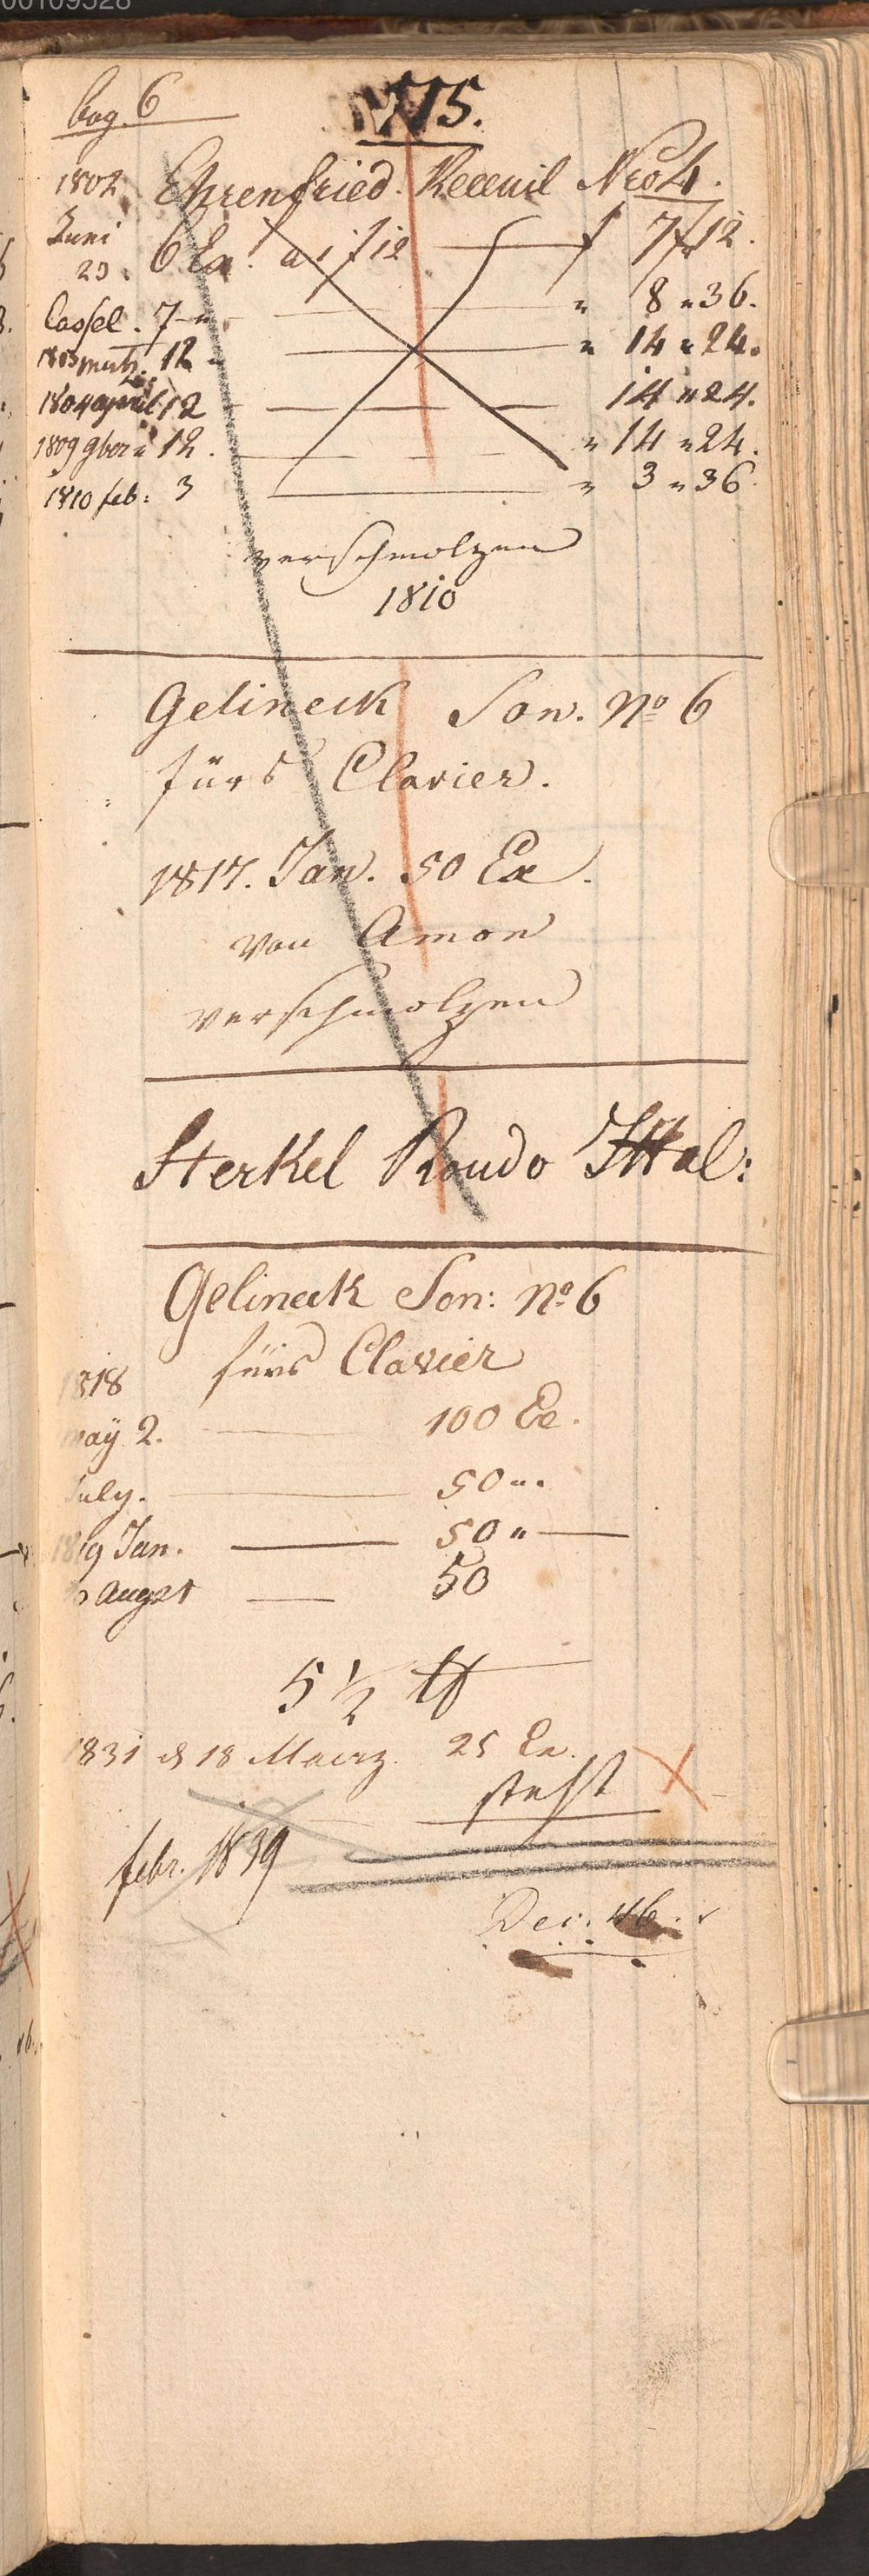 00109528
bog. 6
715.
1802 Ehrenfried. Receuil Nro 4.
Juni
23. 6 Ex. a 1 f 12 — f 7 f 12.
Cassel. 7 — " 8 " 36.
1803 12 — " 14 " 24.
1804 april 12 — 14 " 24.
1809 9ber " 12. — " 14 " 24.
1810 feb: 3 — " 3 " 36
verschmolzen
1810
Gelineck Son. No 6
fürs Clavier.
1817. Jan. 50 Ex.
von Amon
verschmolzen
Sterkel Rondo Ital:
Gelineck Son: No 6
fürs Clavier
1818
may 2. — 100 Ex.
July. — 50 " .
1819 Jan. — 50 " —
Augst — 50
5 1/2 ℔
1831 d 18 Maerz. 25 Ex.
steht
febr. 1839
Dec. 46.